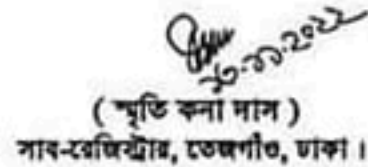 ২৩-১১-২০২২
( স্মৃতি কনা দাস )
সাব-রেজিস্ট্রার, তেজগাঁও, ঢাকা ।